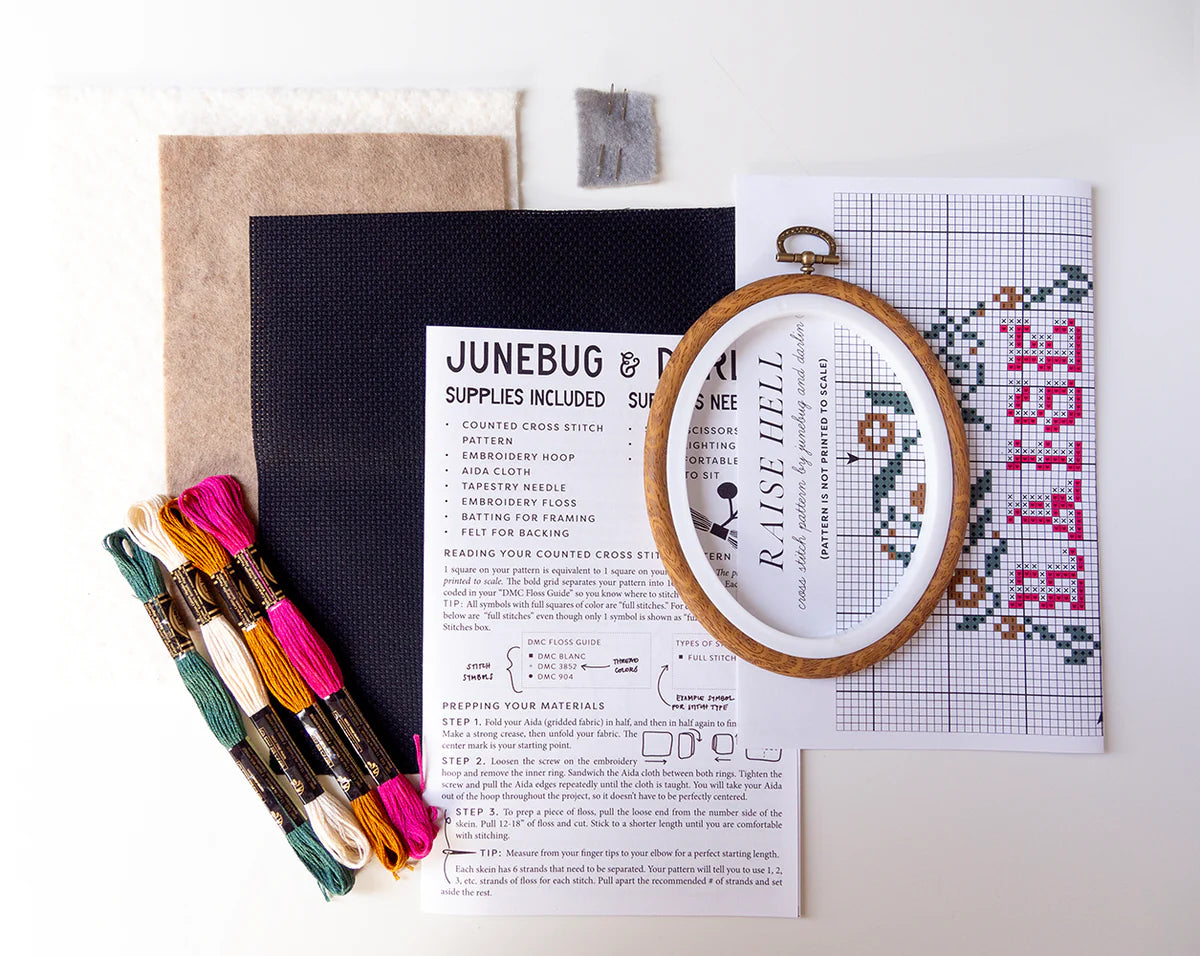 JUNEBUG &
SUPPLIES INCLUDED
• COUNTED CROSS STITCH
PATTERN
• EMBROIDERY HOOP
• AIDA CLOTH
• TAPESTRY NEEDLE
• EMBROIDERY FLOSS
• BATTING FOR FRAMING
• FELT FOR BACKING
TO SIT
READING YOUR COUNTED CROSS
1 square on your pattern is equivalent to 1 square on
printed to scale. The bold grid separates your pattern into
coded in your “DMC Floss Guide” so you know where to stitch
TIP: All symbols with full squares of color are “full stitches.” For
below are “full stitches” even though only 1 symbol is shown as
Stitches box.
DMC FLOSS GUIDE
DMC BLANC
DMC 3852
DMC 904
STITCH
SYMBOLS
THREAD
COLORS
TYPES OF
FULL STITCH
EXAMPLE SYMBOL
FOR STITCH TYPE
PREPPING YOUR MATERIALS
STEP 1. Fold your Aida (gridded fabric) in half, and then in half again to
Make a strong crease, then unfold your fabric. The
center mark is your starting point.
STEP 2. Loosen the screw on the embroidery
hoop and remove the inner ring. Sandwich the Aida cloth between both rings. Tighten the
screw and pull the Aida edges repeatedly until the cloth is taught. You will take your Aida
out of the hoop throughout the project, so it doesn't have to be perfectly centered.
STEP 3. To prep a piece of floss, pull the loose end from the number side of the
skein. Pull 12-18” of floss and cut. Stick to a shorter length until you are comfortable
with stitching.
TIP: Measure from your finger tips to your elbow for a perfect starting length.
Each skein has 6 strands that need to be separated. Your pattern will tell you to use 1, 2,
3, etc. strands of floss for each stitch. Pull apart the recommended # of strands and set
aside the rest.
RAISE HELL
cross stitch pattern by junebug and darlin
(PATTERN IS NOT PRINTED TO SCALE)
RAISE